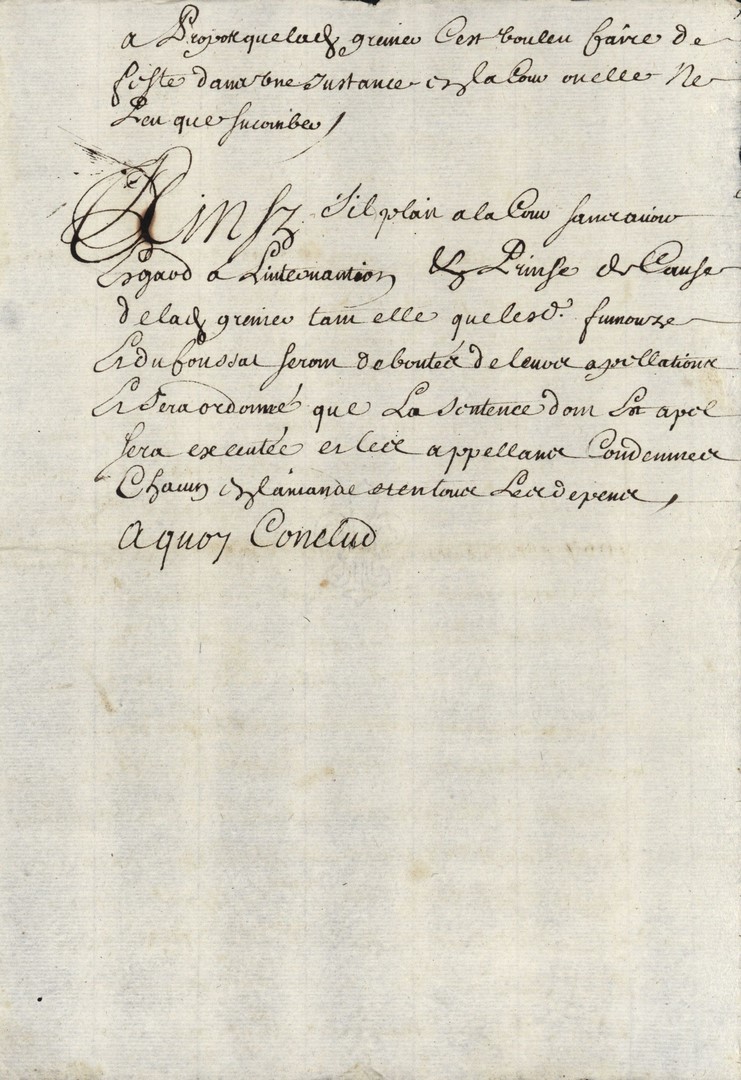 a Propos que lad. grenier C'est vouleu faire de
feste dans une Instance en la Cour ou elle Ne
Peu que sucomber,
Ainsy s'il plait a la Cour sans avoir
Esgard a L'intervantion & Prinse de Cause
de lad. grenier tant elle que lesd. fumouze
Et du foussat seront deboutés de leurs apellations
Et sera ordonné que La Sentence dont Est apel
sera executée et les appellans Condemnes
Chacun en l'amande et en tous Les depens,
a quoy Conclud